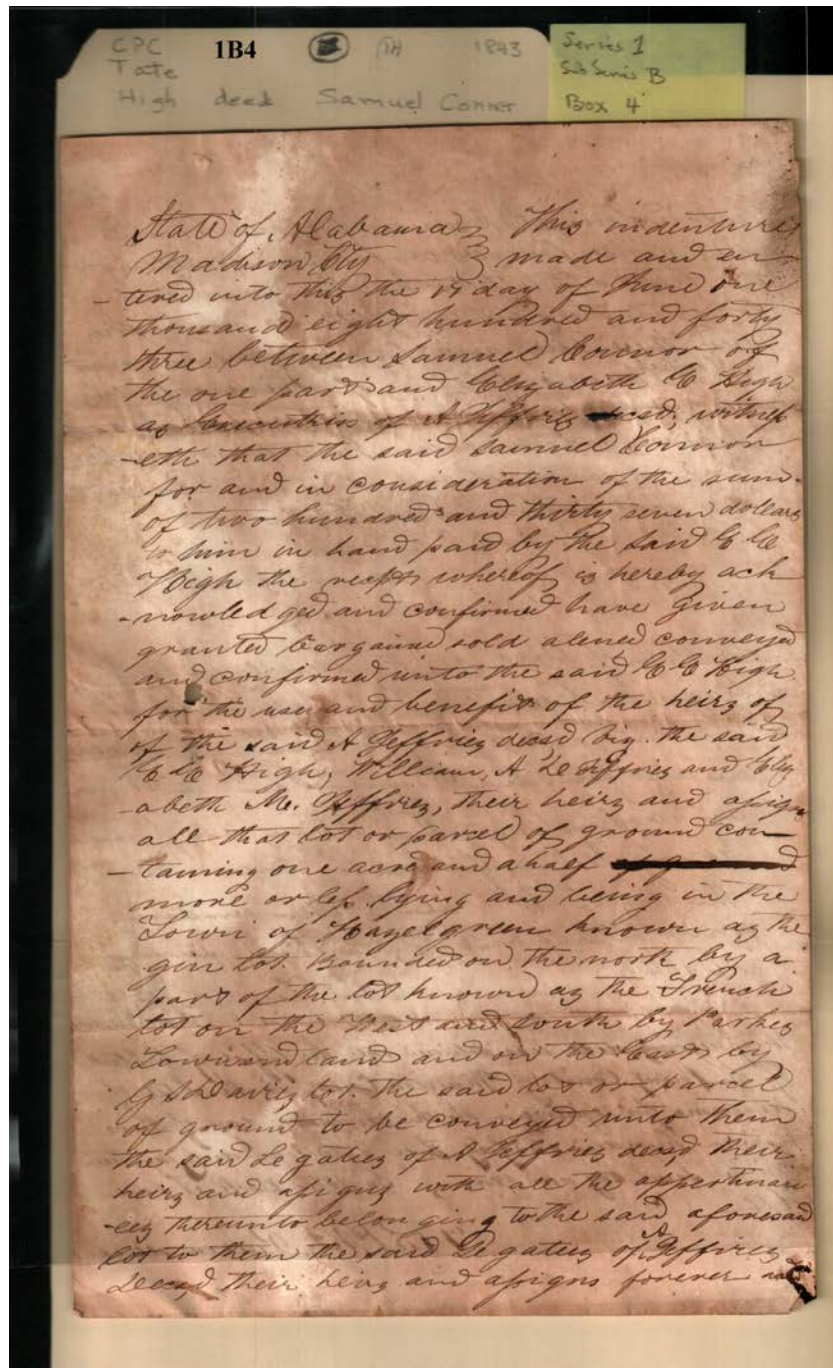 CPC 1B4 1843
Tate
High deed Samuel Conner
Series 1
Sub Series B
Box 4
State of Alabama This indenture
Madison Cty made and en-
-tered into this the 17 day of June one
thousand eight hundred and forty
three between Samuel Connor of
the one part and Elizabeth E High
as Executrix of A Jeffries decsd, witness
-eth that the said Samuel Connor
for and in consideration of the sum
of two hundred and thirty seven dollars
to him in hand paid by the said E E
High the recept whereof is hereby ack
-nowledged and confirmed have given
granted bargained sold alened conveyed
and confirmed unto the said E E High
for the use and benefit of the heirs of
of the said A Jeffries decsd viz. the said
E E High, William, A Jeffries and Eliz
-abeth M. Jeffries, their heirs and assigns
all that lot or parcel of ground con-
-taining one acre and a half
more or less lying and being in the
Town of Hazelgreen known as the
gin lot. Bounded on the north by a
part of the lot known as the French
lot on the West and south by Parkes
Townsend land and on the East by
Davis lot. the said lot or parcel
of ground to be conveyed unto them
the said Legatees of A Jeffries decsd their
heirs and assigns with all the appertinan
-ces thereunto belonging to the said aforesaid
lot to them the said Legatees of A Jeffries
decsd their heirs and assigns forever